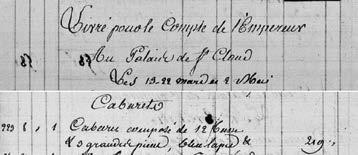 Livré pour le Compte de l'Empereur
Au Palais de St Cloud
Les 19-22 mars et 2 Mai
Cabarets
223 1 1 Cabaret composé de 12 tasses
& 3 grandes pièces, bleu lapis &